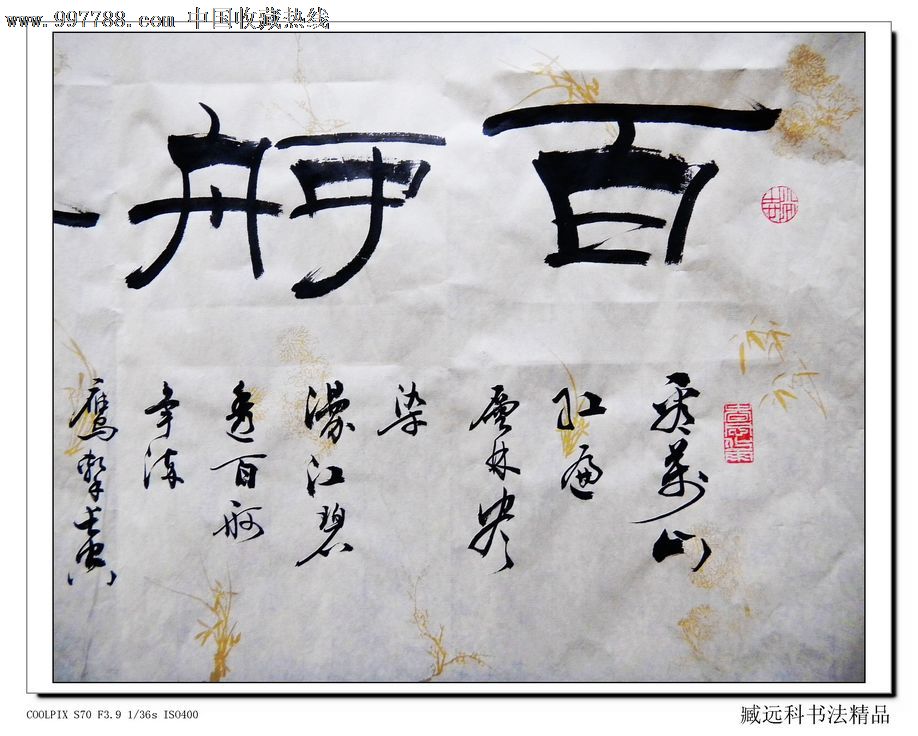 www.997788.com 中国收藏热线
百舸
看萬山
红遍
層林尽
染
漫江碧
透百舸
争流
鷹擊長空
COOLPIX S70 F3.9 1/36s ISO400
臧远科书法精品